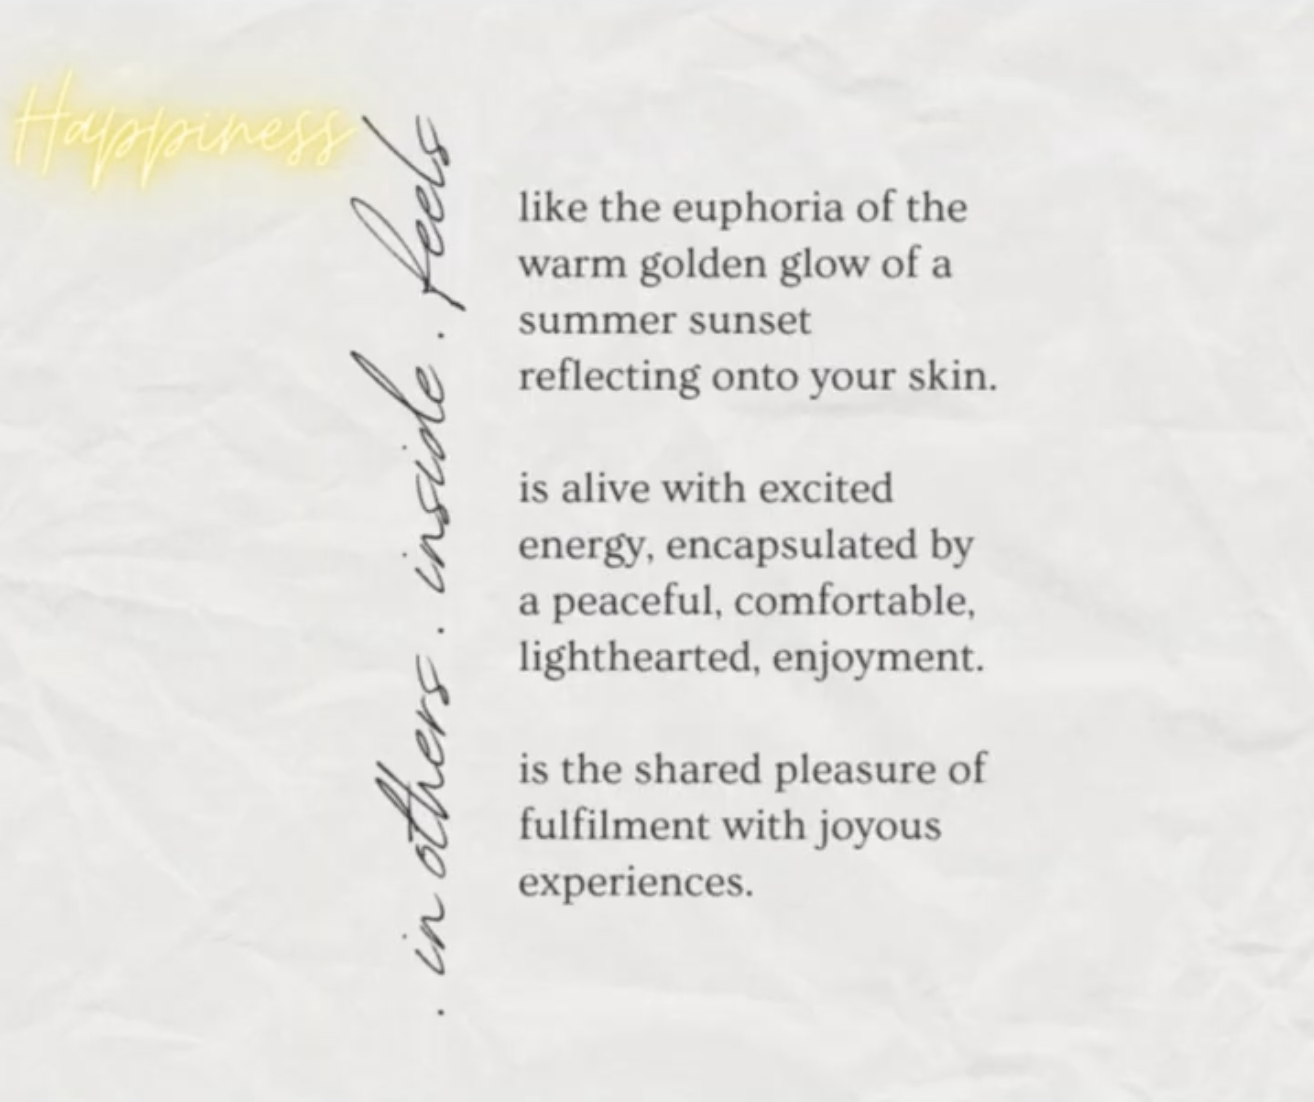 Happiness
. in others . inside . feels
like the euphoria of the
warm golden glow of a
summer sunset
reflecting onto your skin.
is alive with excited
energy, encapsulated by
a peaceful, comfortable,
lighthearted, enjoyment.
is the shared pleasure of
fulfilment with joyous
experiences.